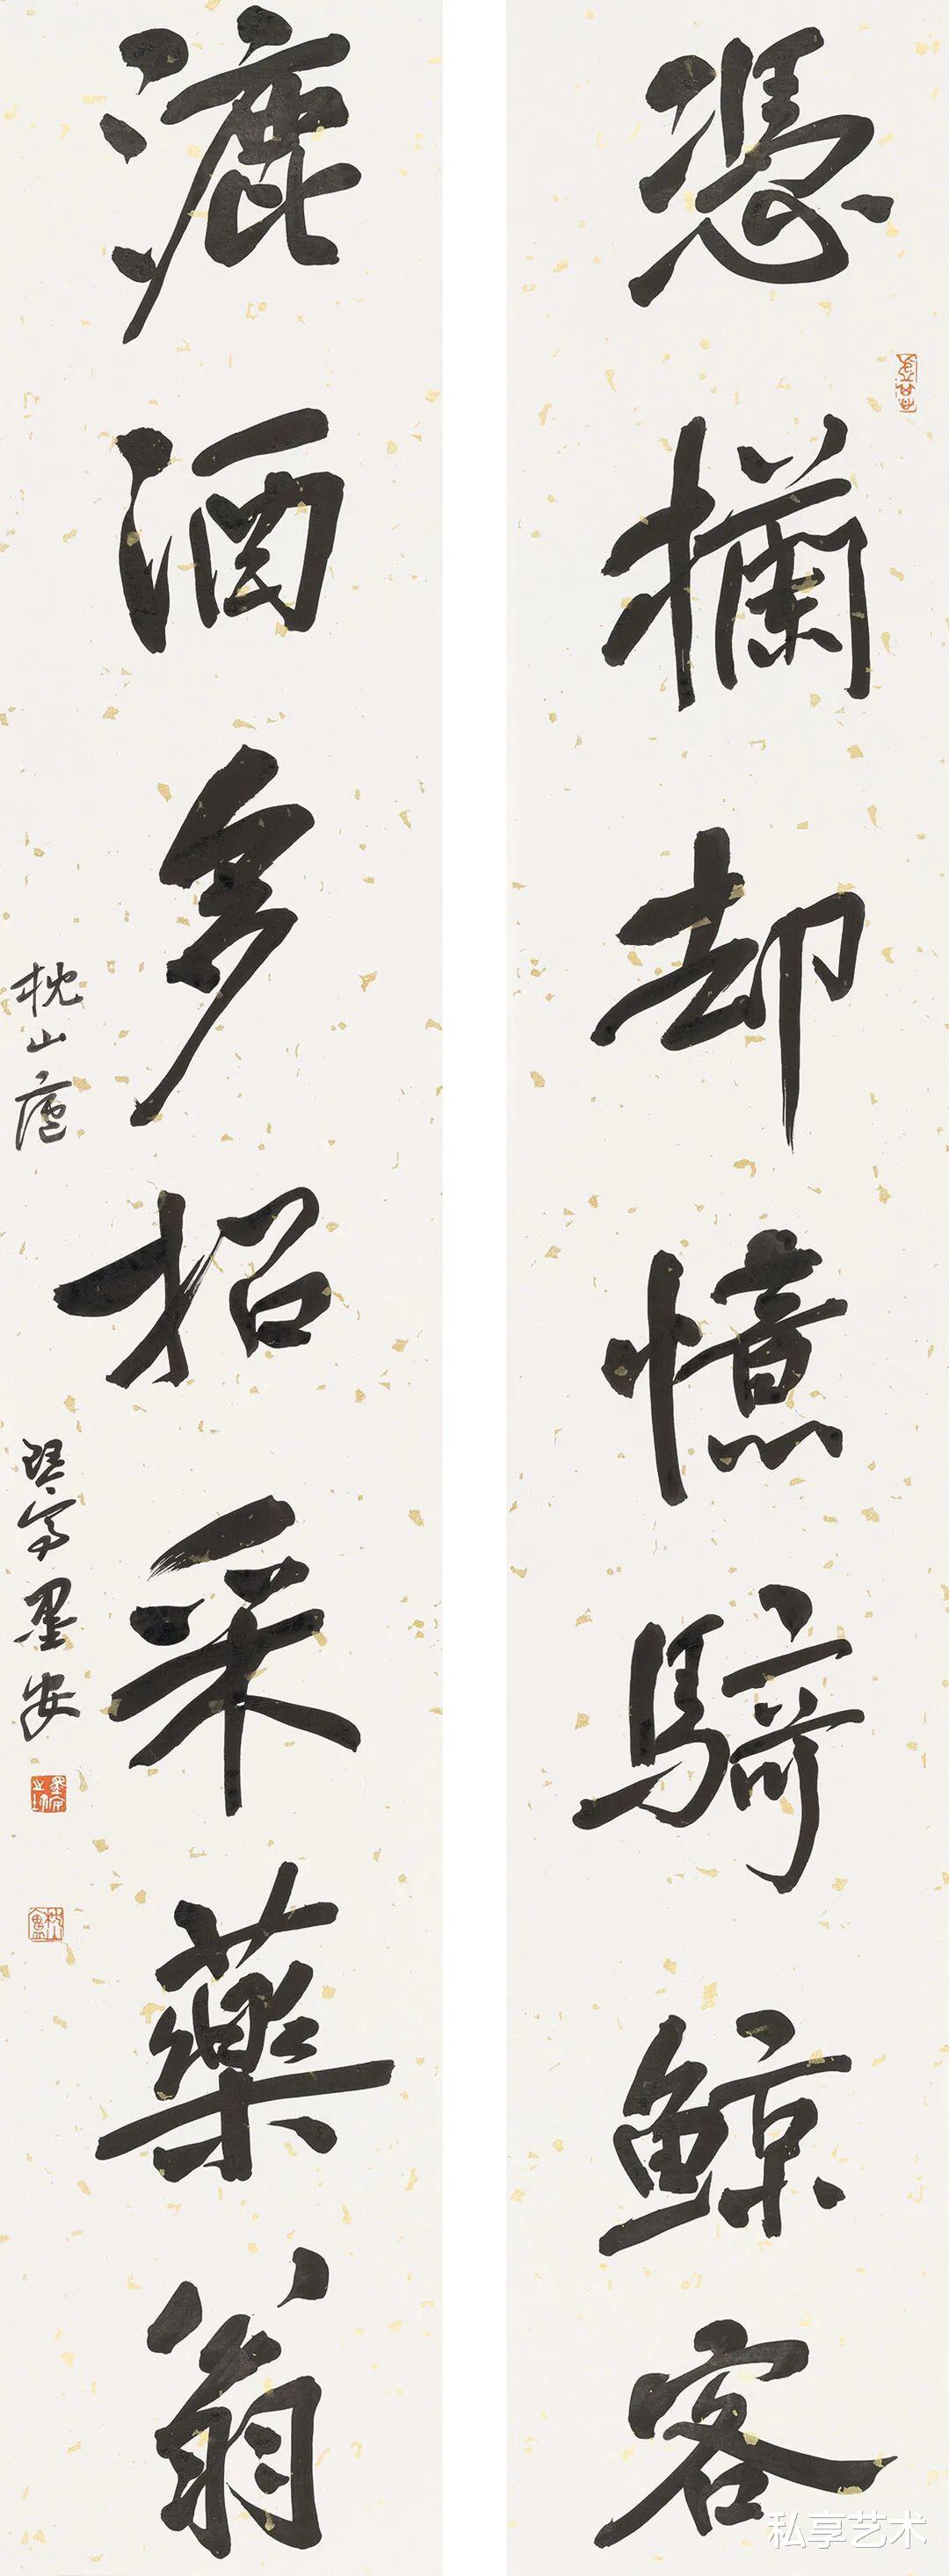 憑攔却憶騎鯨客
漉酒多招采藥翁
枕山廬
墨安
私享艺术